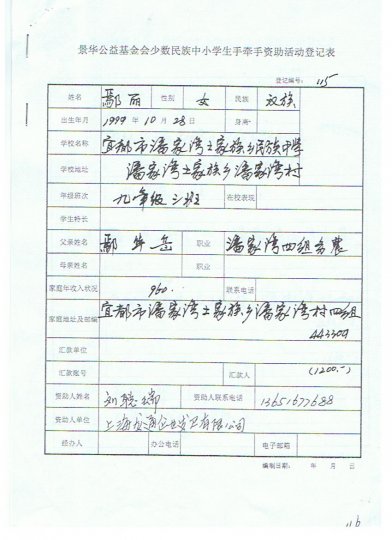 景华公益基金会少数民族中小学生手牵手资助活动登记表
登记编号: 115
姓名 鄢丽 性别 女 民族 汉族
出生年月 1999年10月28日 身高
学校名称 宜都市潘家湾土家族乡民族中学
学校地址 潘家湾土家族乡潘家湾村
年级班次 九年级三班 在校表现
学生特长
父亲姓名 鄢华岳 职业 潘家湾四组务农
母亲姓名 职业
家庭年收入状况 950. 联系电话
家庭地址及邮编 宜都市潘家湾土家族乡潘家湾村四组
443304
汇款单位
汇款账号 汇款人 (1200.-)
资助人姓名 刘 资助人联系电话 13651677688
资助人单位 上海 有限公司
经办人 办公电话 电子邮箱
编制日期: 年 月 日
116